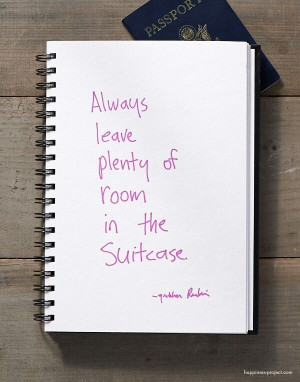 PASSPORT
Always
leave
plenty of
room
in the
Suitcase.
-Gretchen Rubin
happiness-project.com